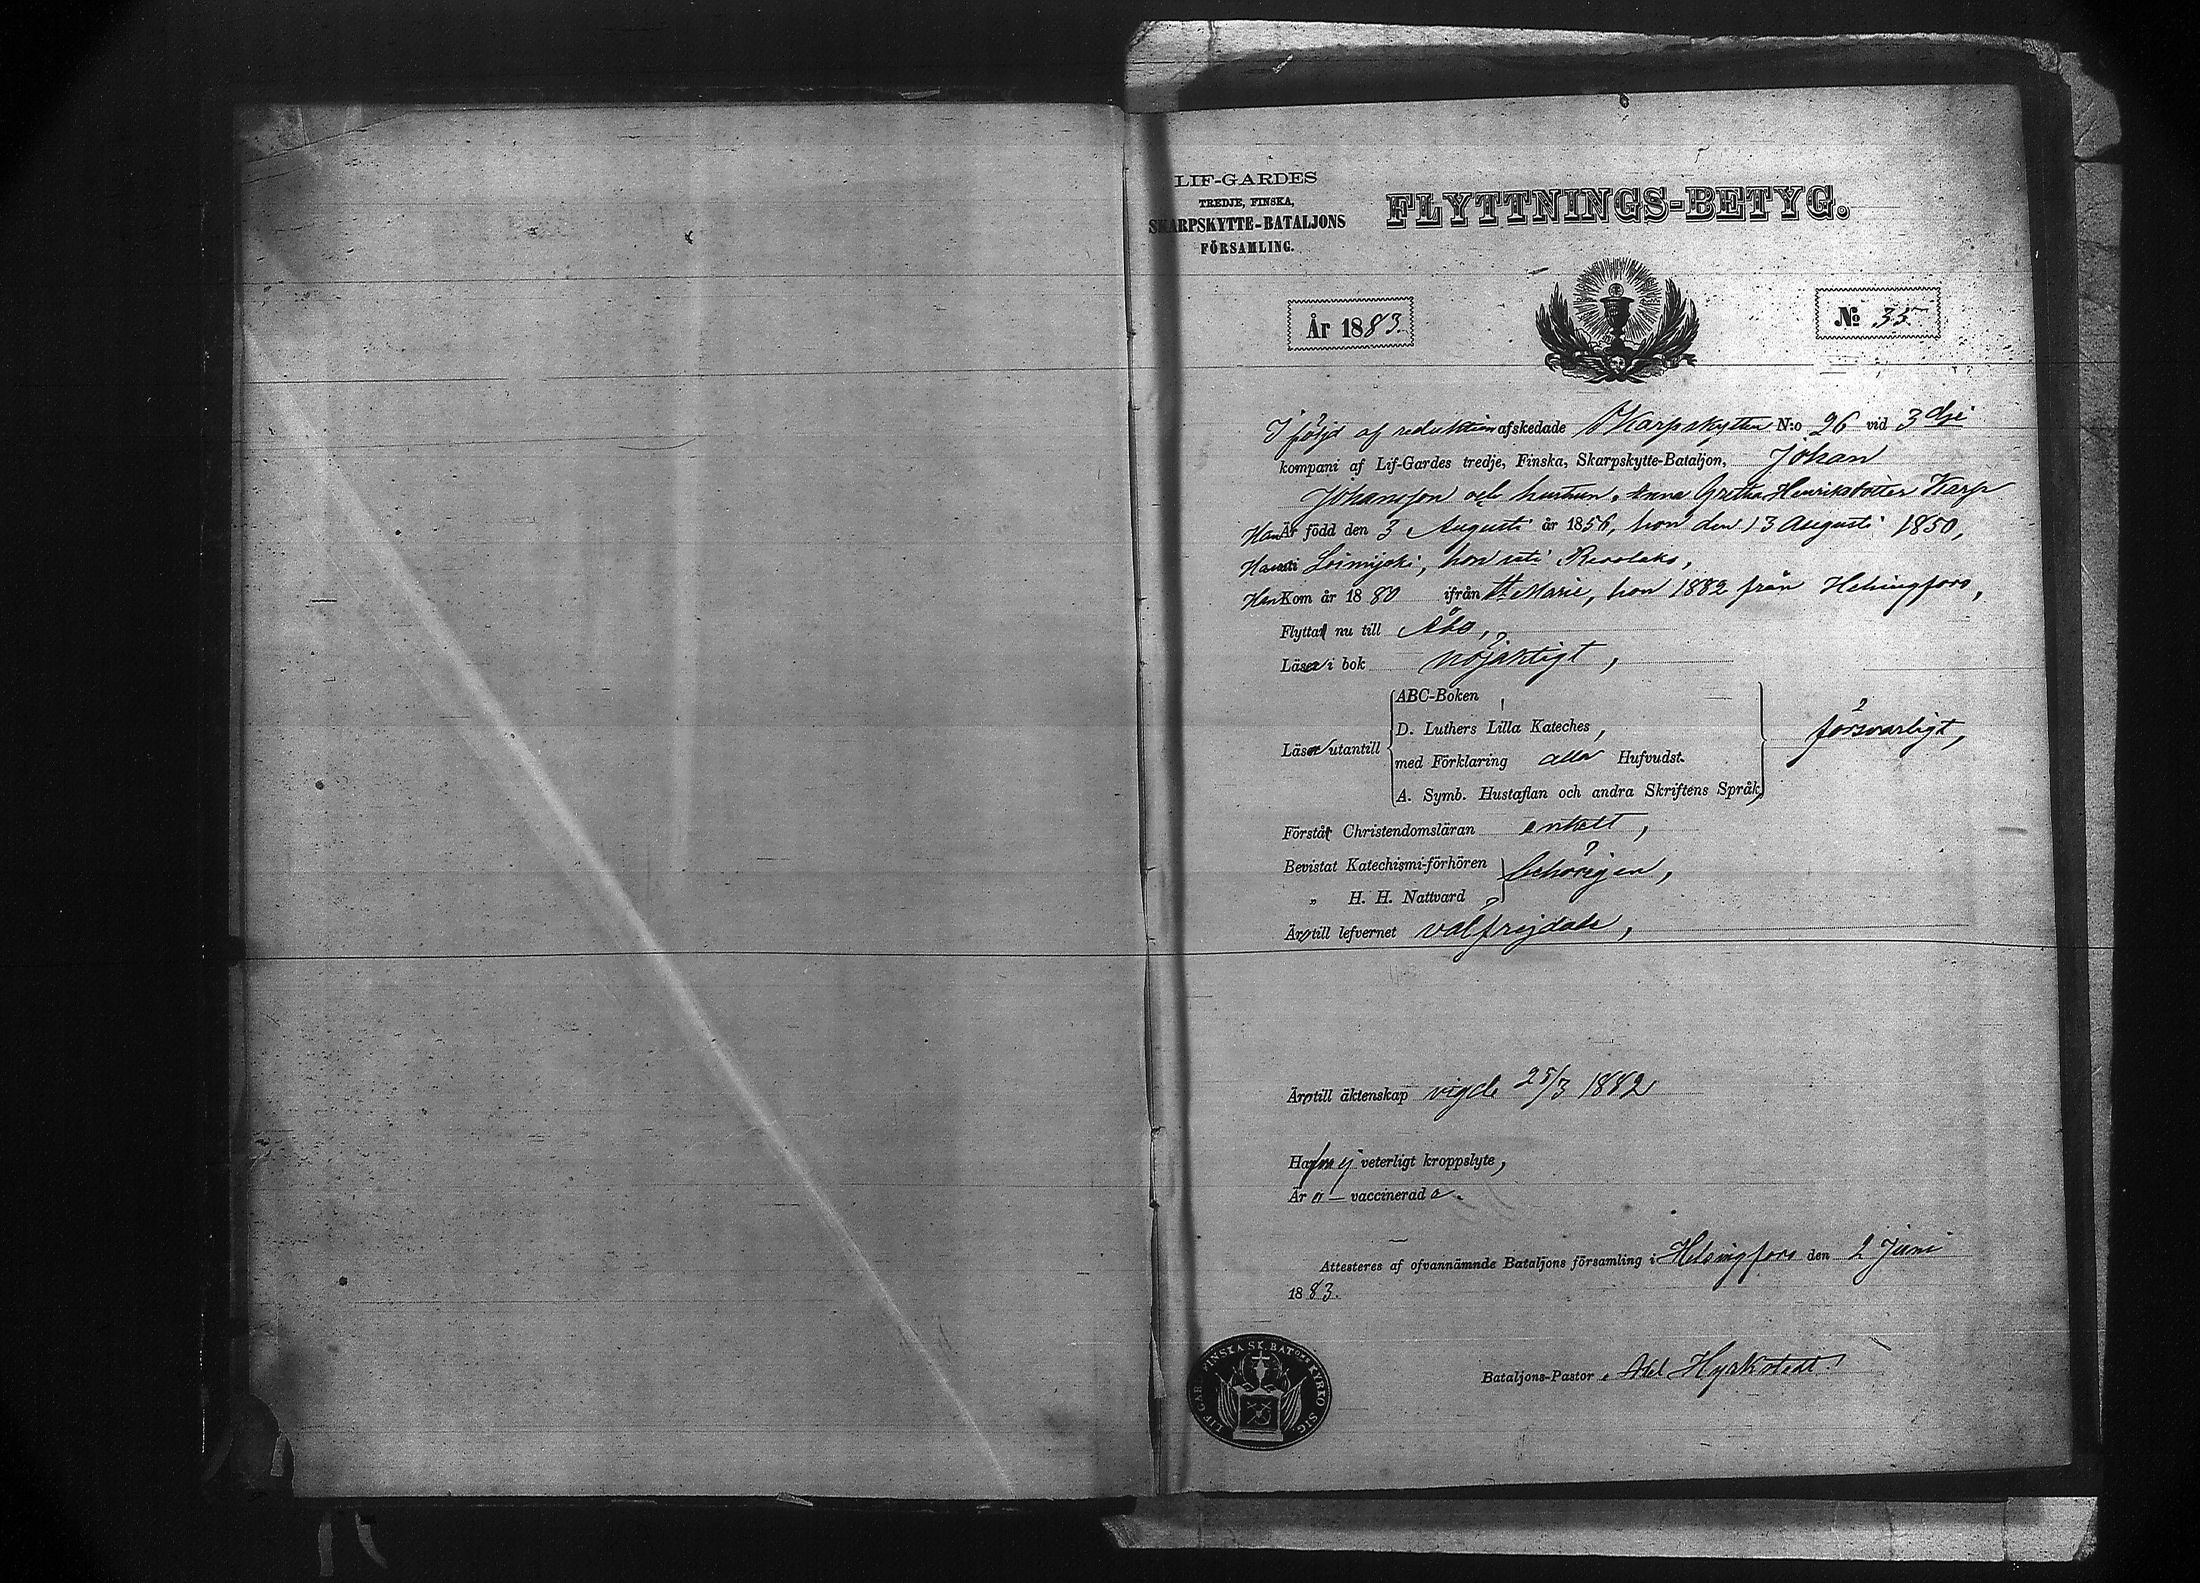 LIF-GARDES
TREDJE, FINSKA,
SKARPSKYTTE-BATALJONS
FÖRSAMLING.
FLYTTNINGS-BETYG.
År 1883.
No 35
I följd af reduktion afskedade Skarpskytten N:o 26 vid 3dje
kompani af Lif-Gardes tredje, Finska, Skarpskytte-Bataljon, Johan
Johansson och hustrun Anna Greta Henriksdotter Karp
Han Är född den 3 Augusti år 1856, hon den 13 Augusti 1850,
Han uti Loimijoki, hon uti Revolaks,
Han Kom år 1880 ifrån St Marie, hon 1882 från Helsingfors,
Flytta nu till Åbo,
Läsa i bok nöjaktigt,
ABC-Boken,
D. Luthers Lilla Kateches,
Läsa utantill med Förklaring alla Hufvudst. försvarligt,
A. Symb. Hustaflan och andra Skriftens Språk,
Förstå Christendomsläran enkelt,
Bevistat Katechismi-förhören behörigen,
„ H. H. Nattvard
Äro till lefvernet välfrejdade,
Äro till äktenskap vigde 25/3 1882
Hafva ej veterligt kroppslyte,
Är o — vaccinerade.
Attesteres af ofvannämnde Bataljons församling i Helsingfors den 2 Juni
1883.
LIF GAR. FINSKA SK. BAT:ns KYRKO SIG.
Bataljons-Pastor. Axel Hyrkstedt.